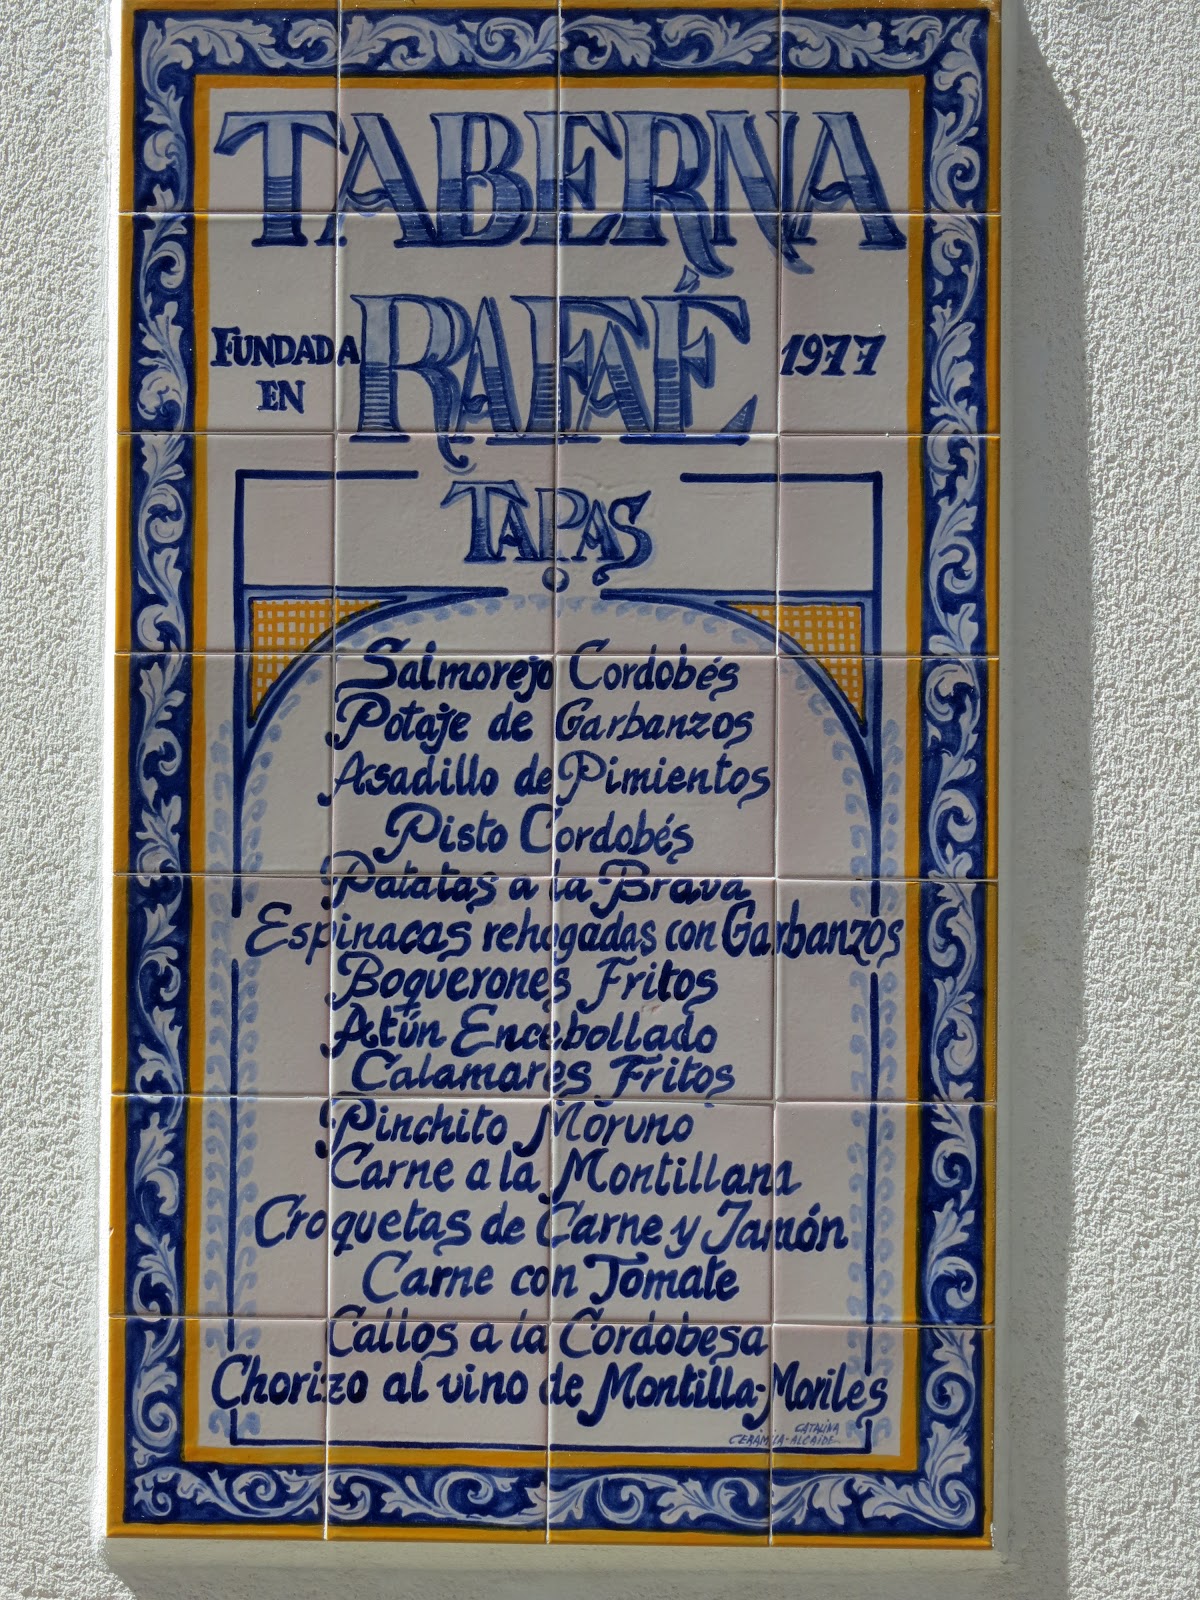 TABERNA
RAFAÉ
FUNDADA
EN
1977
TAPAS
Salmorejo Cordobés
Potaje de Garbanzos
Asadillo de Pimientos
Pisto Cordobés
Patatas a la Brava
Espinacas rehogadas con Garbanzos
Boquerones Fritos
Atún Encebollado
Calamares Fritos
Pinchito Moruno
Carne a la Montillana
Croquetas de Carne y Jamón
Carne con Tomate
Callos a la Cordobesa
Chorizo al vino de Montilla-Moriles
CATALINA
CERÁMICA-ALCAIDE